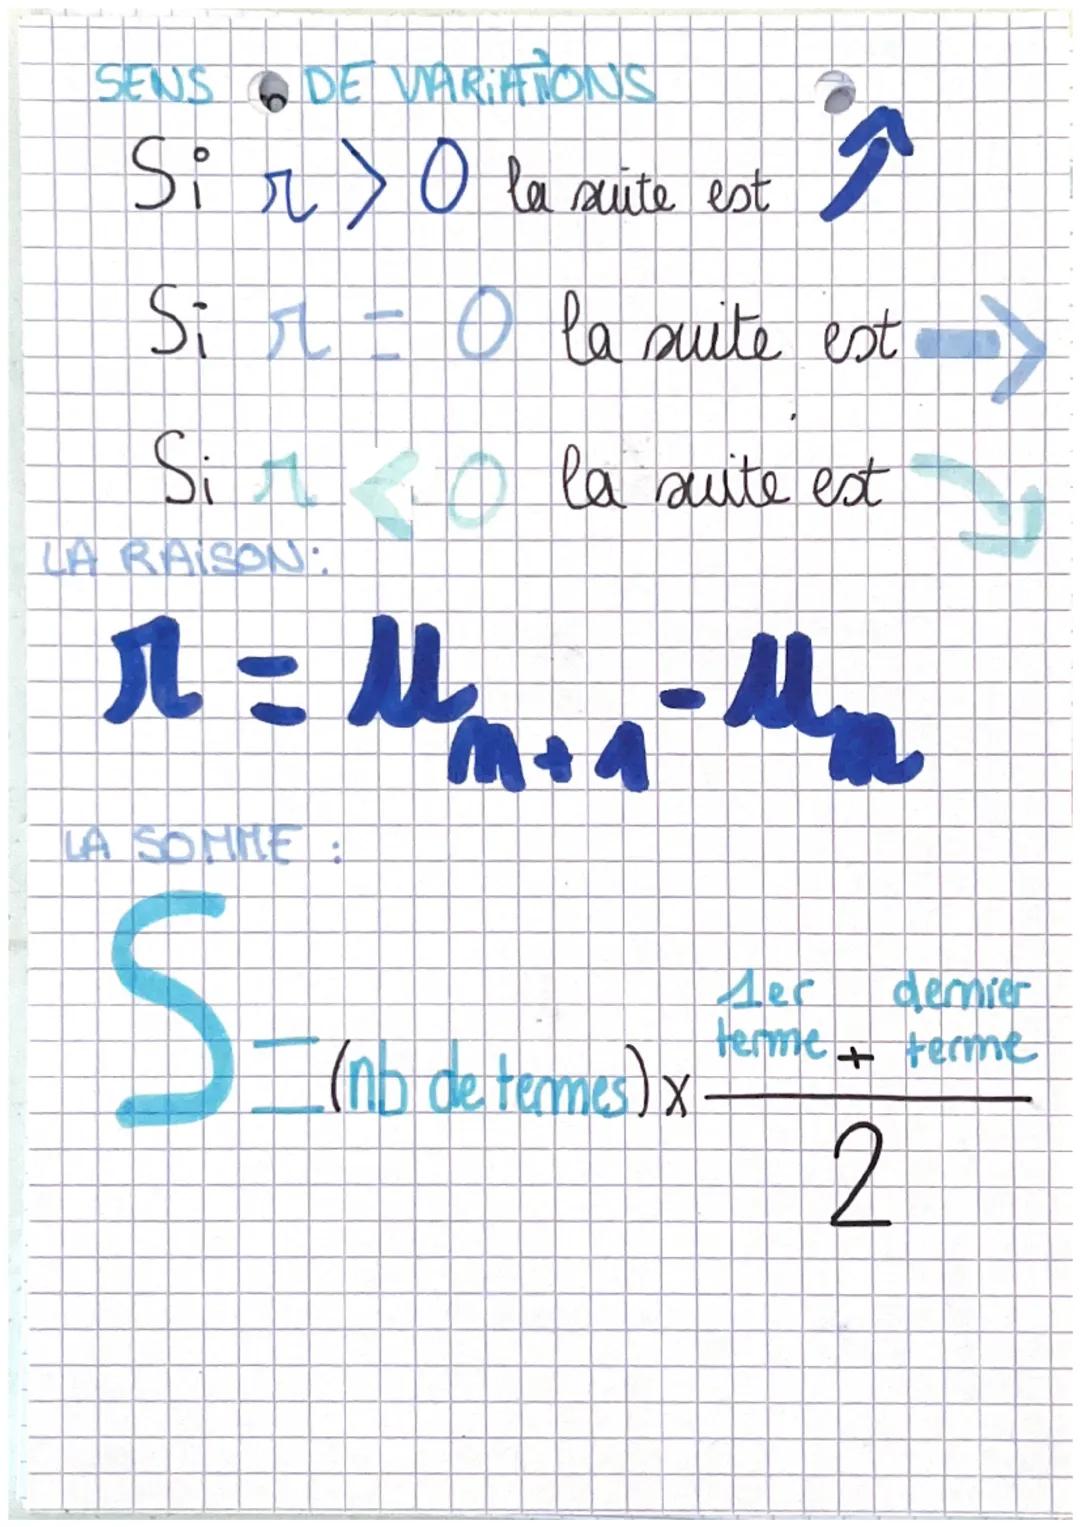 SENS DE VARIATIONS
Si r > 0 la suite est ↗
Si r = 0 la suite est →
Si r < 0 la suite est ↘
LA RAISON:
r = u_{n+1} - u_n
LA SOMME :
S = (nb de termes) x (1er terme + dernier terme) / 2